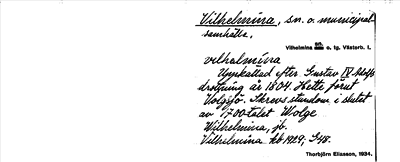 Vilhelmina, sn. o. municipal-
samhälle.
Vilhelmina sn. o. tg. Västerb. l.
vilhälmina
Uppkallad efter Gustav IV Adolfs
drottning år 1804. Hette förut
Volgsjö. Skrevs stundom i slutet
av 1700-talet Wolge
Wilhelmina, jb.
Vilhelmina kb 1929, 948.
Thorbjörn Eliasson, 1934.